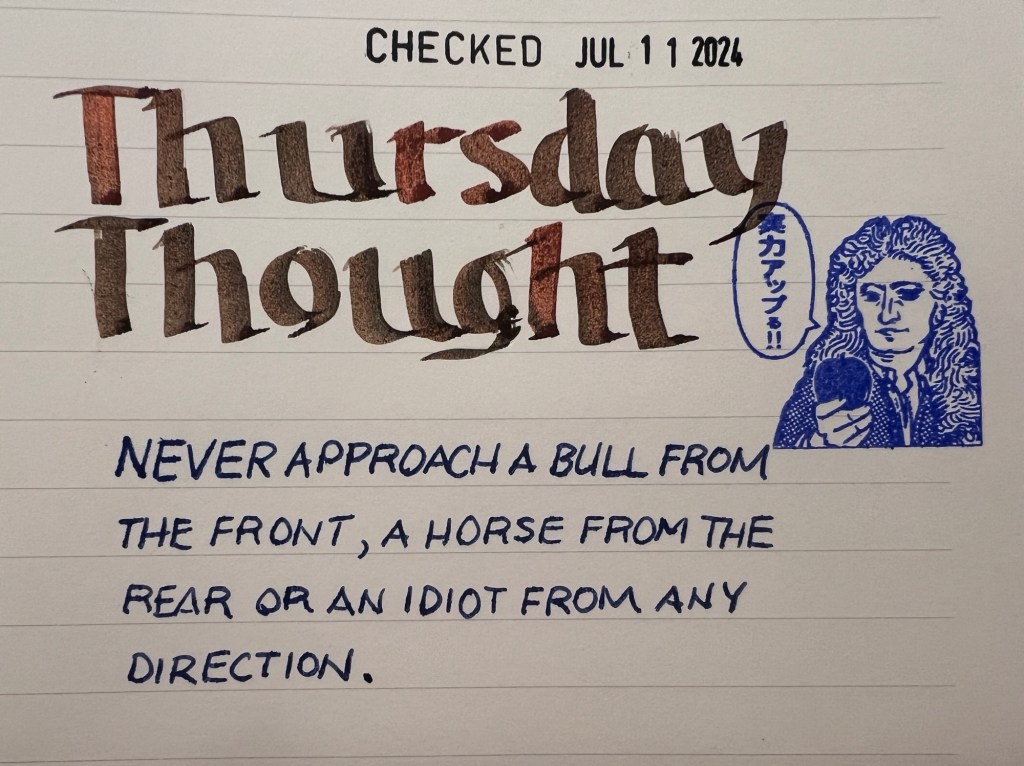 CHECKED JUL 11 2024
Thursday
Thought
実力アップる!!
NEVER APPROACH A BULL FROM
THE FRONT, A HORSE FROM THE
REAR OR AN IDIOT FROM ANY
DIRECTION.